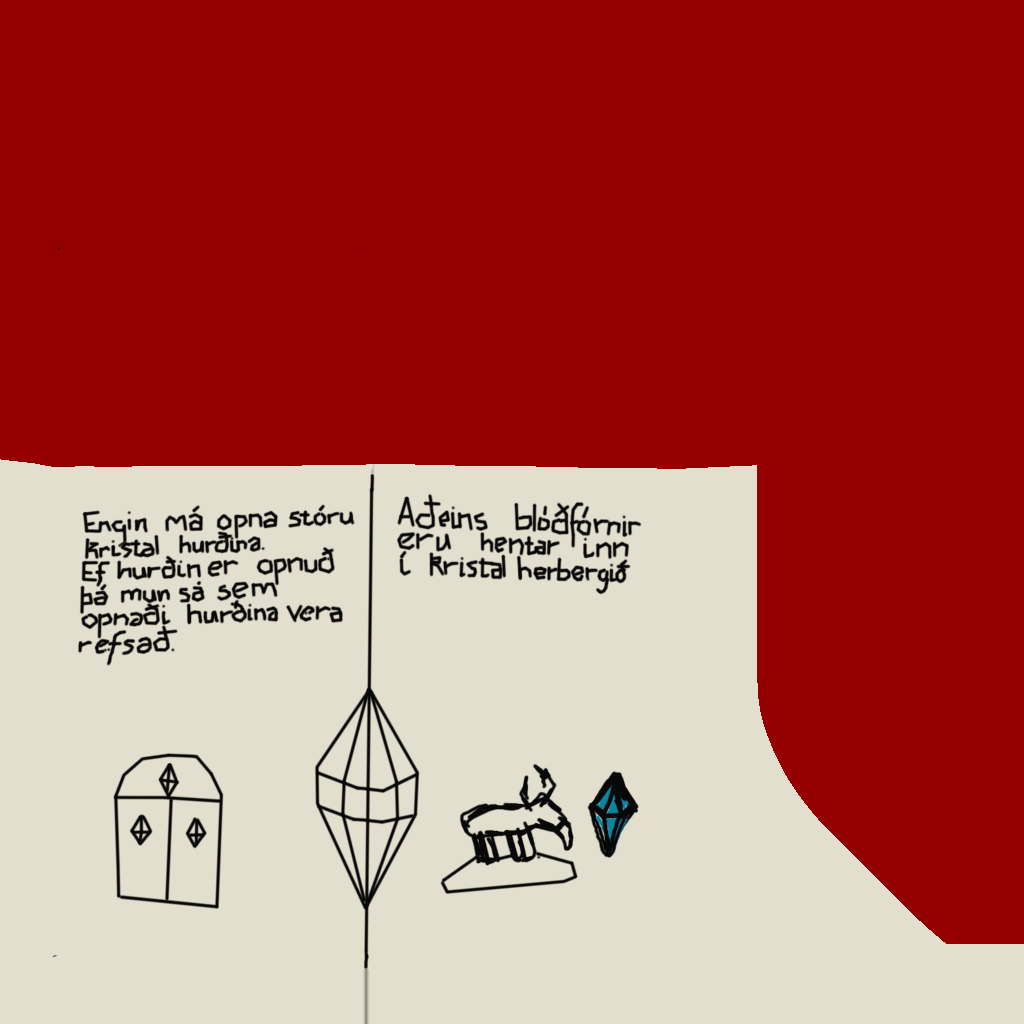 Engin má opna stóru
kristal hurðina.
Ef hurðin er opnuð
þá mun sá sem
opnaði hurðina vera
refsað.
Aðeins blóðfórnir
eru hentar inn
í kristal herbergið